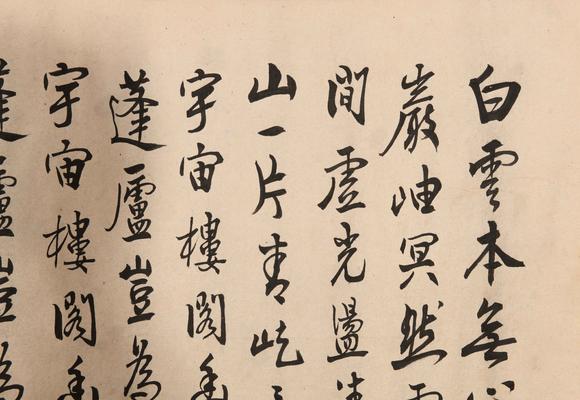 白雲本無
巖岫冥然
間虛光盪
山一片青屹
宇宙樓閣
蓬廬豈為
宇宙樓閣
蓬廬豈為